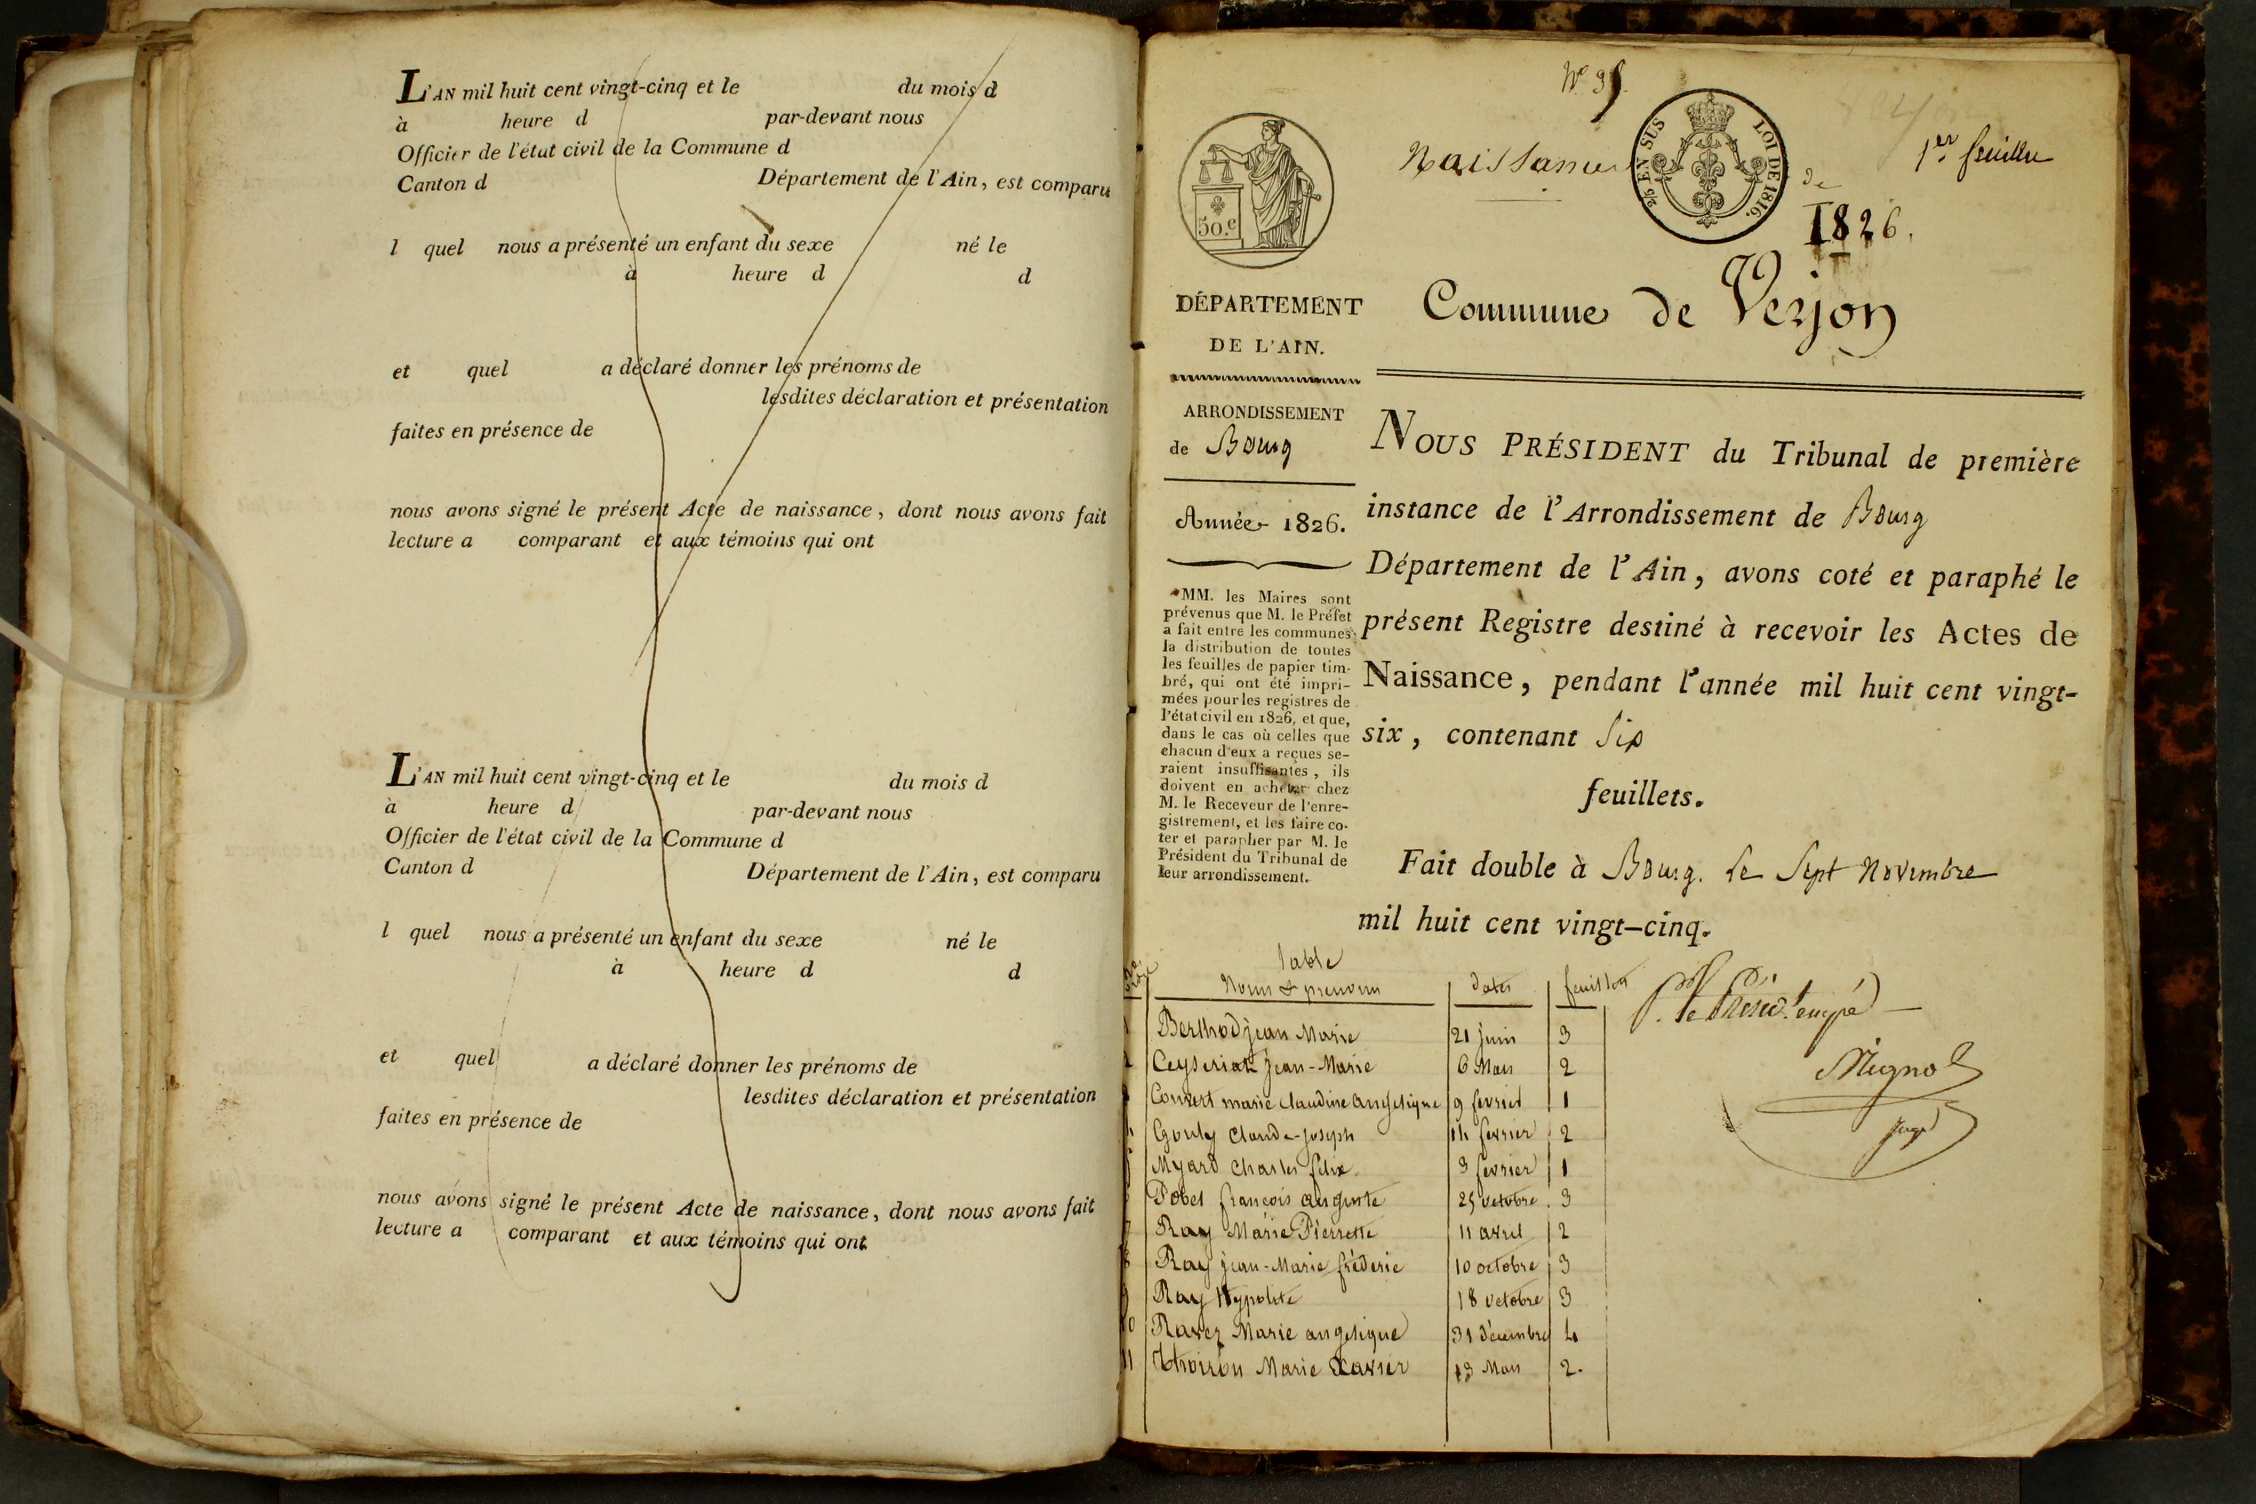 L'AN mil huit cent vingt-cinq et le du mois d
à heure d par-devant nous
Officier de l'état civil de la Commune d
Canton d Département de l'Ain, est comparu
l quel nous a présenté un enfant du sexe né le
à heure d d
et quel a déclaré donner les prénoms de
lesdites déclaration et présentation
faites en présence de
nous avons signé le présent Acte de naissance, dont nous avons fait
lecture a comparant et aux témoins qui ont
L'AN mil huit cent vingt-cinq et le du mois d
à heure d par-devant nous
Officier de l'état civil de la Commune d
Canton d Département de l'Ain, est comparu
l quel nous a présenté un enfant du sexe né le
à heure d d
et quel a déclaré donner les prénoms de
lesdites déclaration et présentation
faites en présence de
nous avons signé le présent Acte de naissance, dont nous avons fait
lecture a comparant et aux témoins qui ont
50.c
Naissances
2/5 EN SUS LOI DE 1816.
1er feuillet
de
1826.
Commune de Verjon
DÉPARTEMENT
DE L'AIN.
ARRONDISSEMENT
de Bourg
Année 1826.
MM. les Maires sont
prévenus que M. le Préfet
a fait entre les communes
la distribution de toutes
les feuilles de papier tim-
bré, qui ont été impri-
mées pour les registres de
l'état civil en 1826, et que,
dans le cas où celles que
chacun d'eux a reçues se-
raient insuffisantes, ils
doivent en acheter chez
M. le Receveur de l'enre-
gistrement, et les faire co-
ter et parapher par M. le
Président du Tribunal de
leur arrondissement.
NOUS PRÉSIDENT du Tribunal de première
instance de l'Arrondissement de Bourg
Département de l'Ain, avons coté et paraphé le
présent Registre destiné à recevoir les Actes de
Naissance, pendant l'année mil huit cent vingt-
six, contenant Six
feuillets.
Fait double à Bourg. Le Sept Novembre
mil huit cent vingt-cinq.
Table
Noms & prenoms dates feuillets
Berthod jean Marie 21 juin 3
Ceyseriat jean-Marie 6 Mars 2
Convert marie Claudine angelique 9 fevrier 1
Gouly Claude-joseph 14 fevrier 2
Myard Charles felix 3 fevrier 1
Pobel françois auguste 25 octobre 3
Ray Marie Pierrette 11 avril 2
Ray jean-Marie fréderic 10 octobre 3
Ray Hypolite 18 octobre 3
10 Ravez Marie angelique 31 décembre 4
11 Thoiron Marie Xavier 13 Mars 2.
P. le Présid.t empé
Mignot
juge